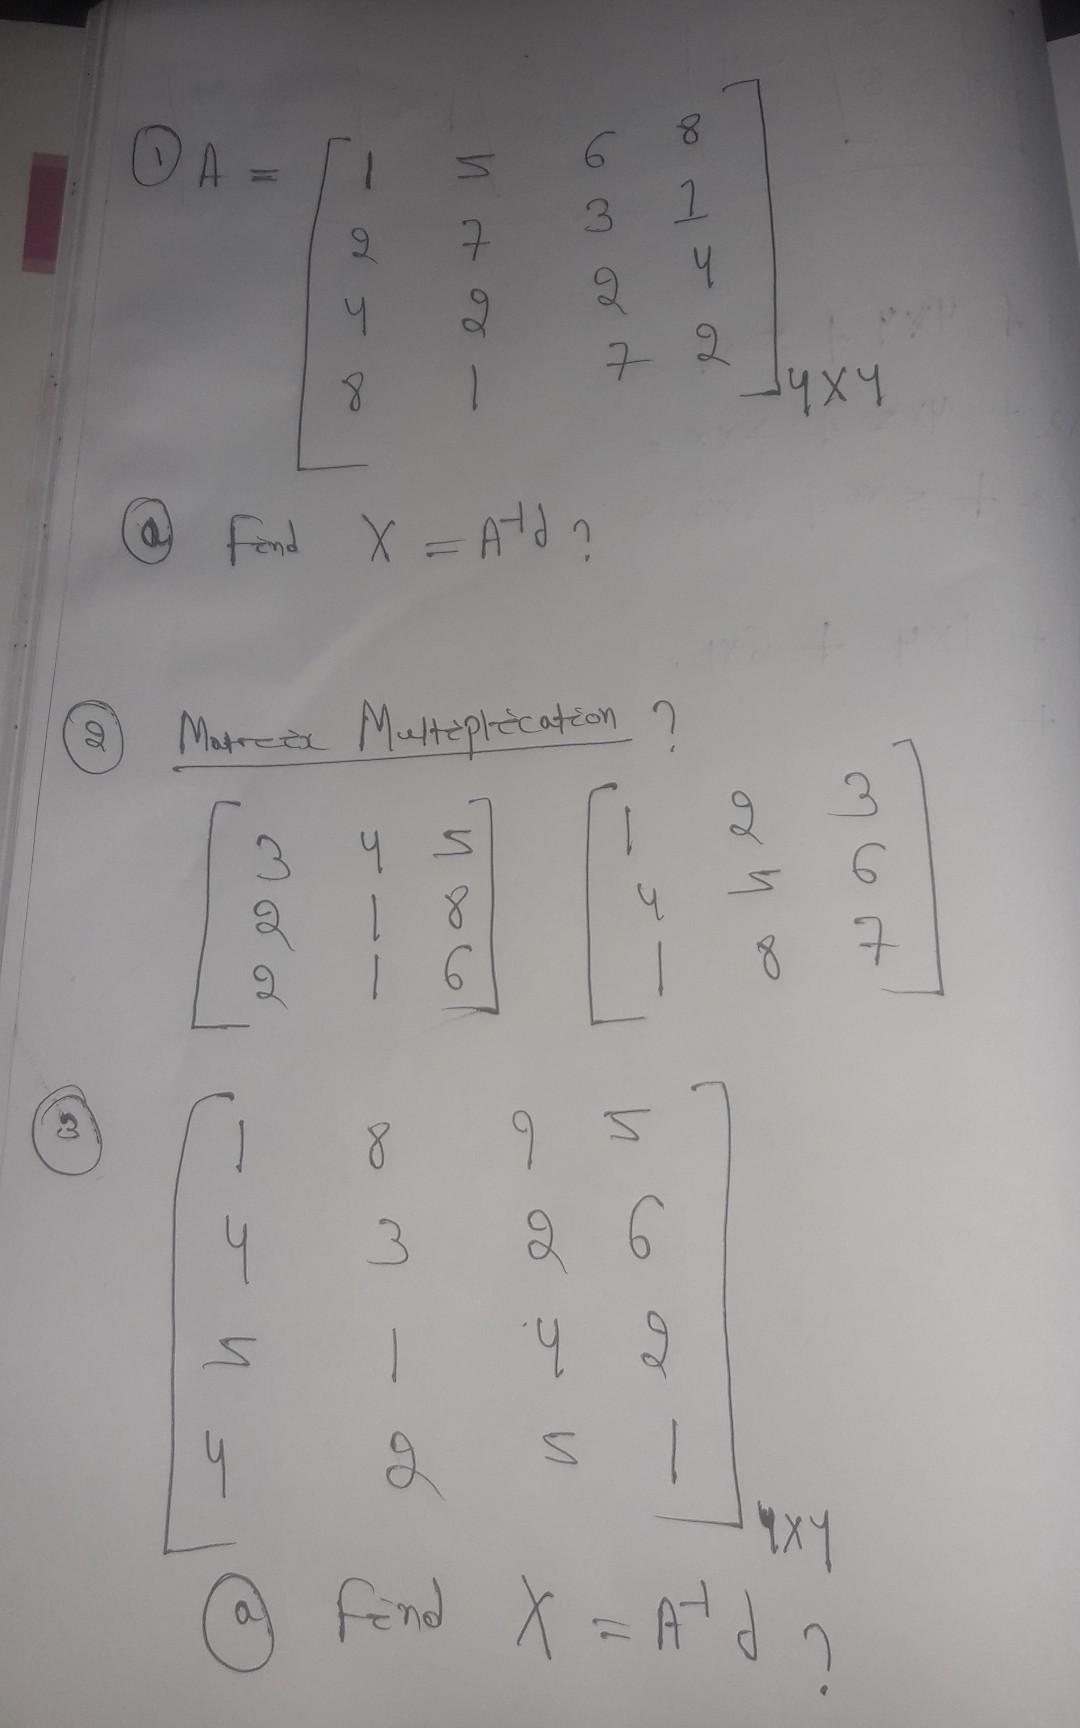 ① A = [ 1 5 6 8
2 7 3 1
4 2 2 4
8 1 7 2 ] 4x4
ⓐ Find X = A⁻¹d ?
② Matrix Multiplication ?
[ 3 4 5 ] [ 1 2 3 ]
[ 2 1 8 ] [ 4 5 6 ]
[ 2 1 6 ] [ 1 8 7 ]
③ [ 1 8 9 5
4 3 2 6
5 1 4 2
4 2 5 1 ] 4x4
ⓐ Find X = A⁻¹d ?